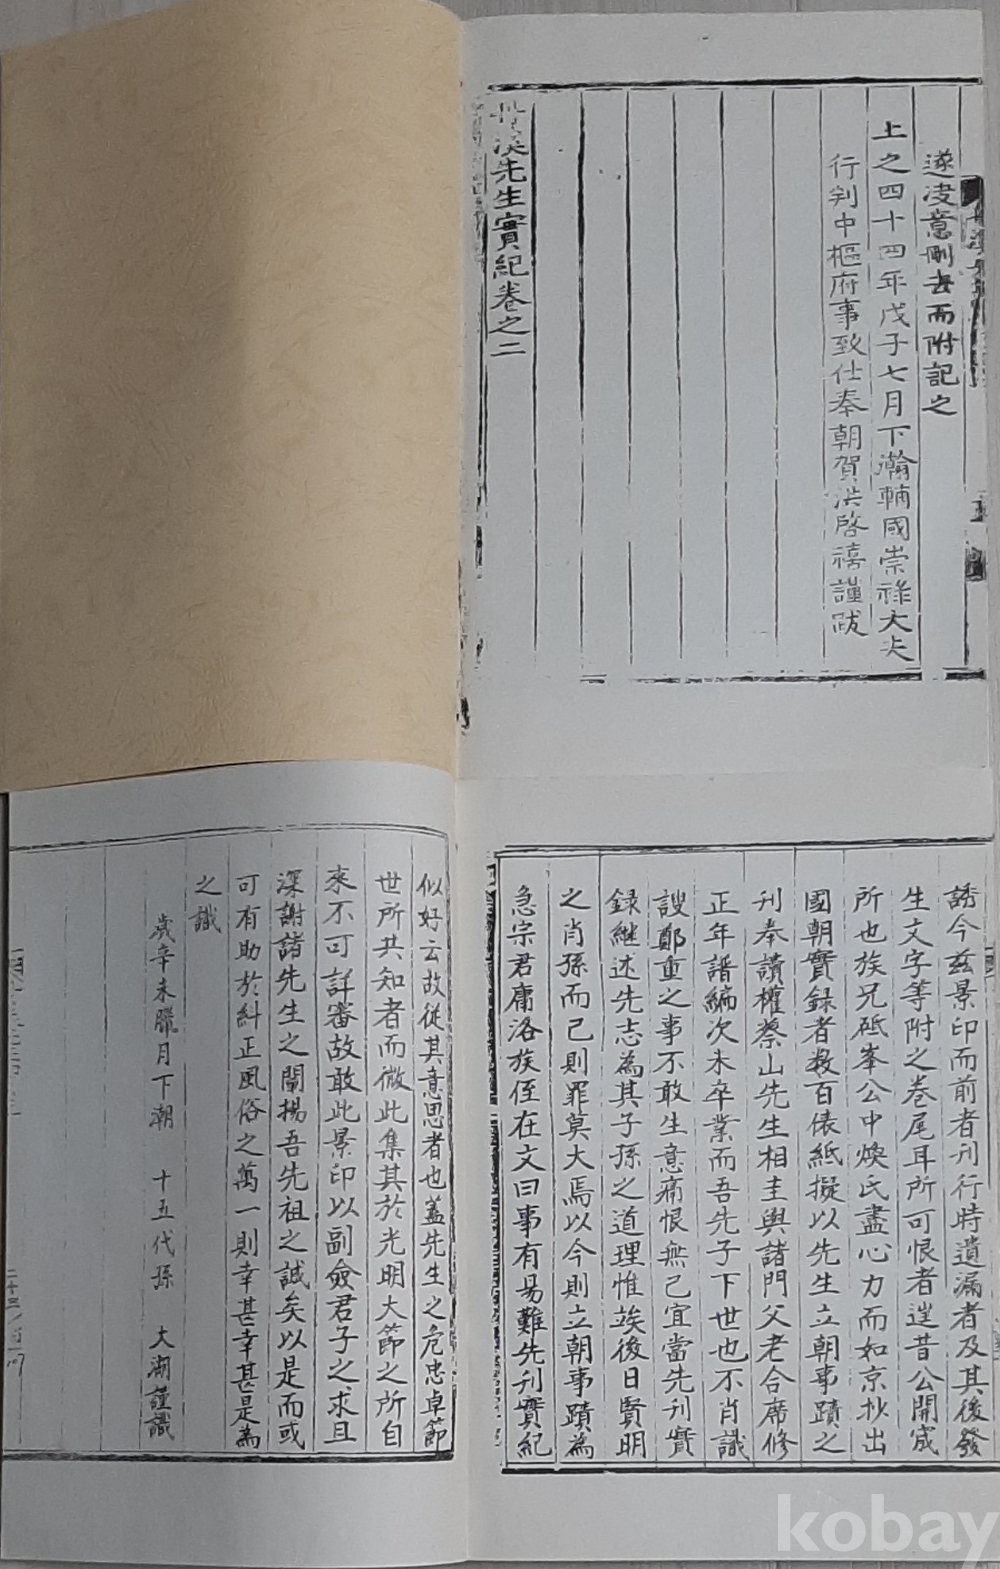 遂浚意刪去而附記之
上之四十四年戊子七月下瀚輔國崇祿大夫
行判中樞府事致仕奉朝賀洪啓禧謹跋
先生實紀卷之二
誘今茲景印而前者刊行時遺漏者及其後發
生文字等附之卷尾耳所可恨者遑昔公開宬
所也族兄砥峯公中煥氏盡心力而如京抄出
國朝實録者数百俵紙擬以先生立朝事蹟之
刊奉請權蔡山先生相圭與諸門父老合席修
正年譜編次未卒業而吾先子下世也不肖識
謏鄭重之事不敢生意痛恨無已宜當先刊實
録継述先志為其子孫之道理惟竢後日賢明
之肖孫而已則罪莫大焉以今則立朝事蹟為
急宗君庸洛族侄在文曰事有易難先刊實紀
似好云故從其意思者也蓋先生之危忠卓節
世所共知者而微此集其於光明大節之所自
來不可詳審故敢此景印以副僉君子之求且
深謝諸先生之闡揚吾先祖之誠矣以是而或
可有助於糾正風俗之萬一則幸甚幸甚是為
之識
歲辛未臘月下潮 十五代孫 大湖謹識
kobay